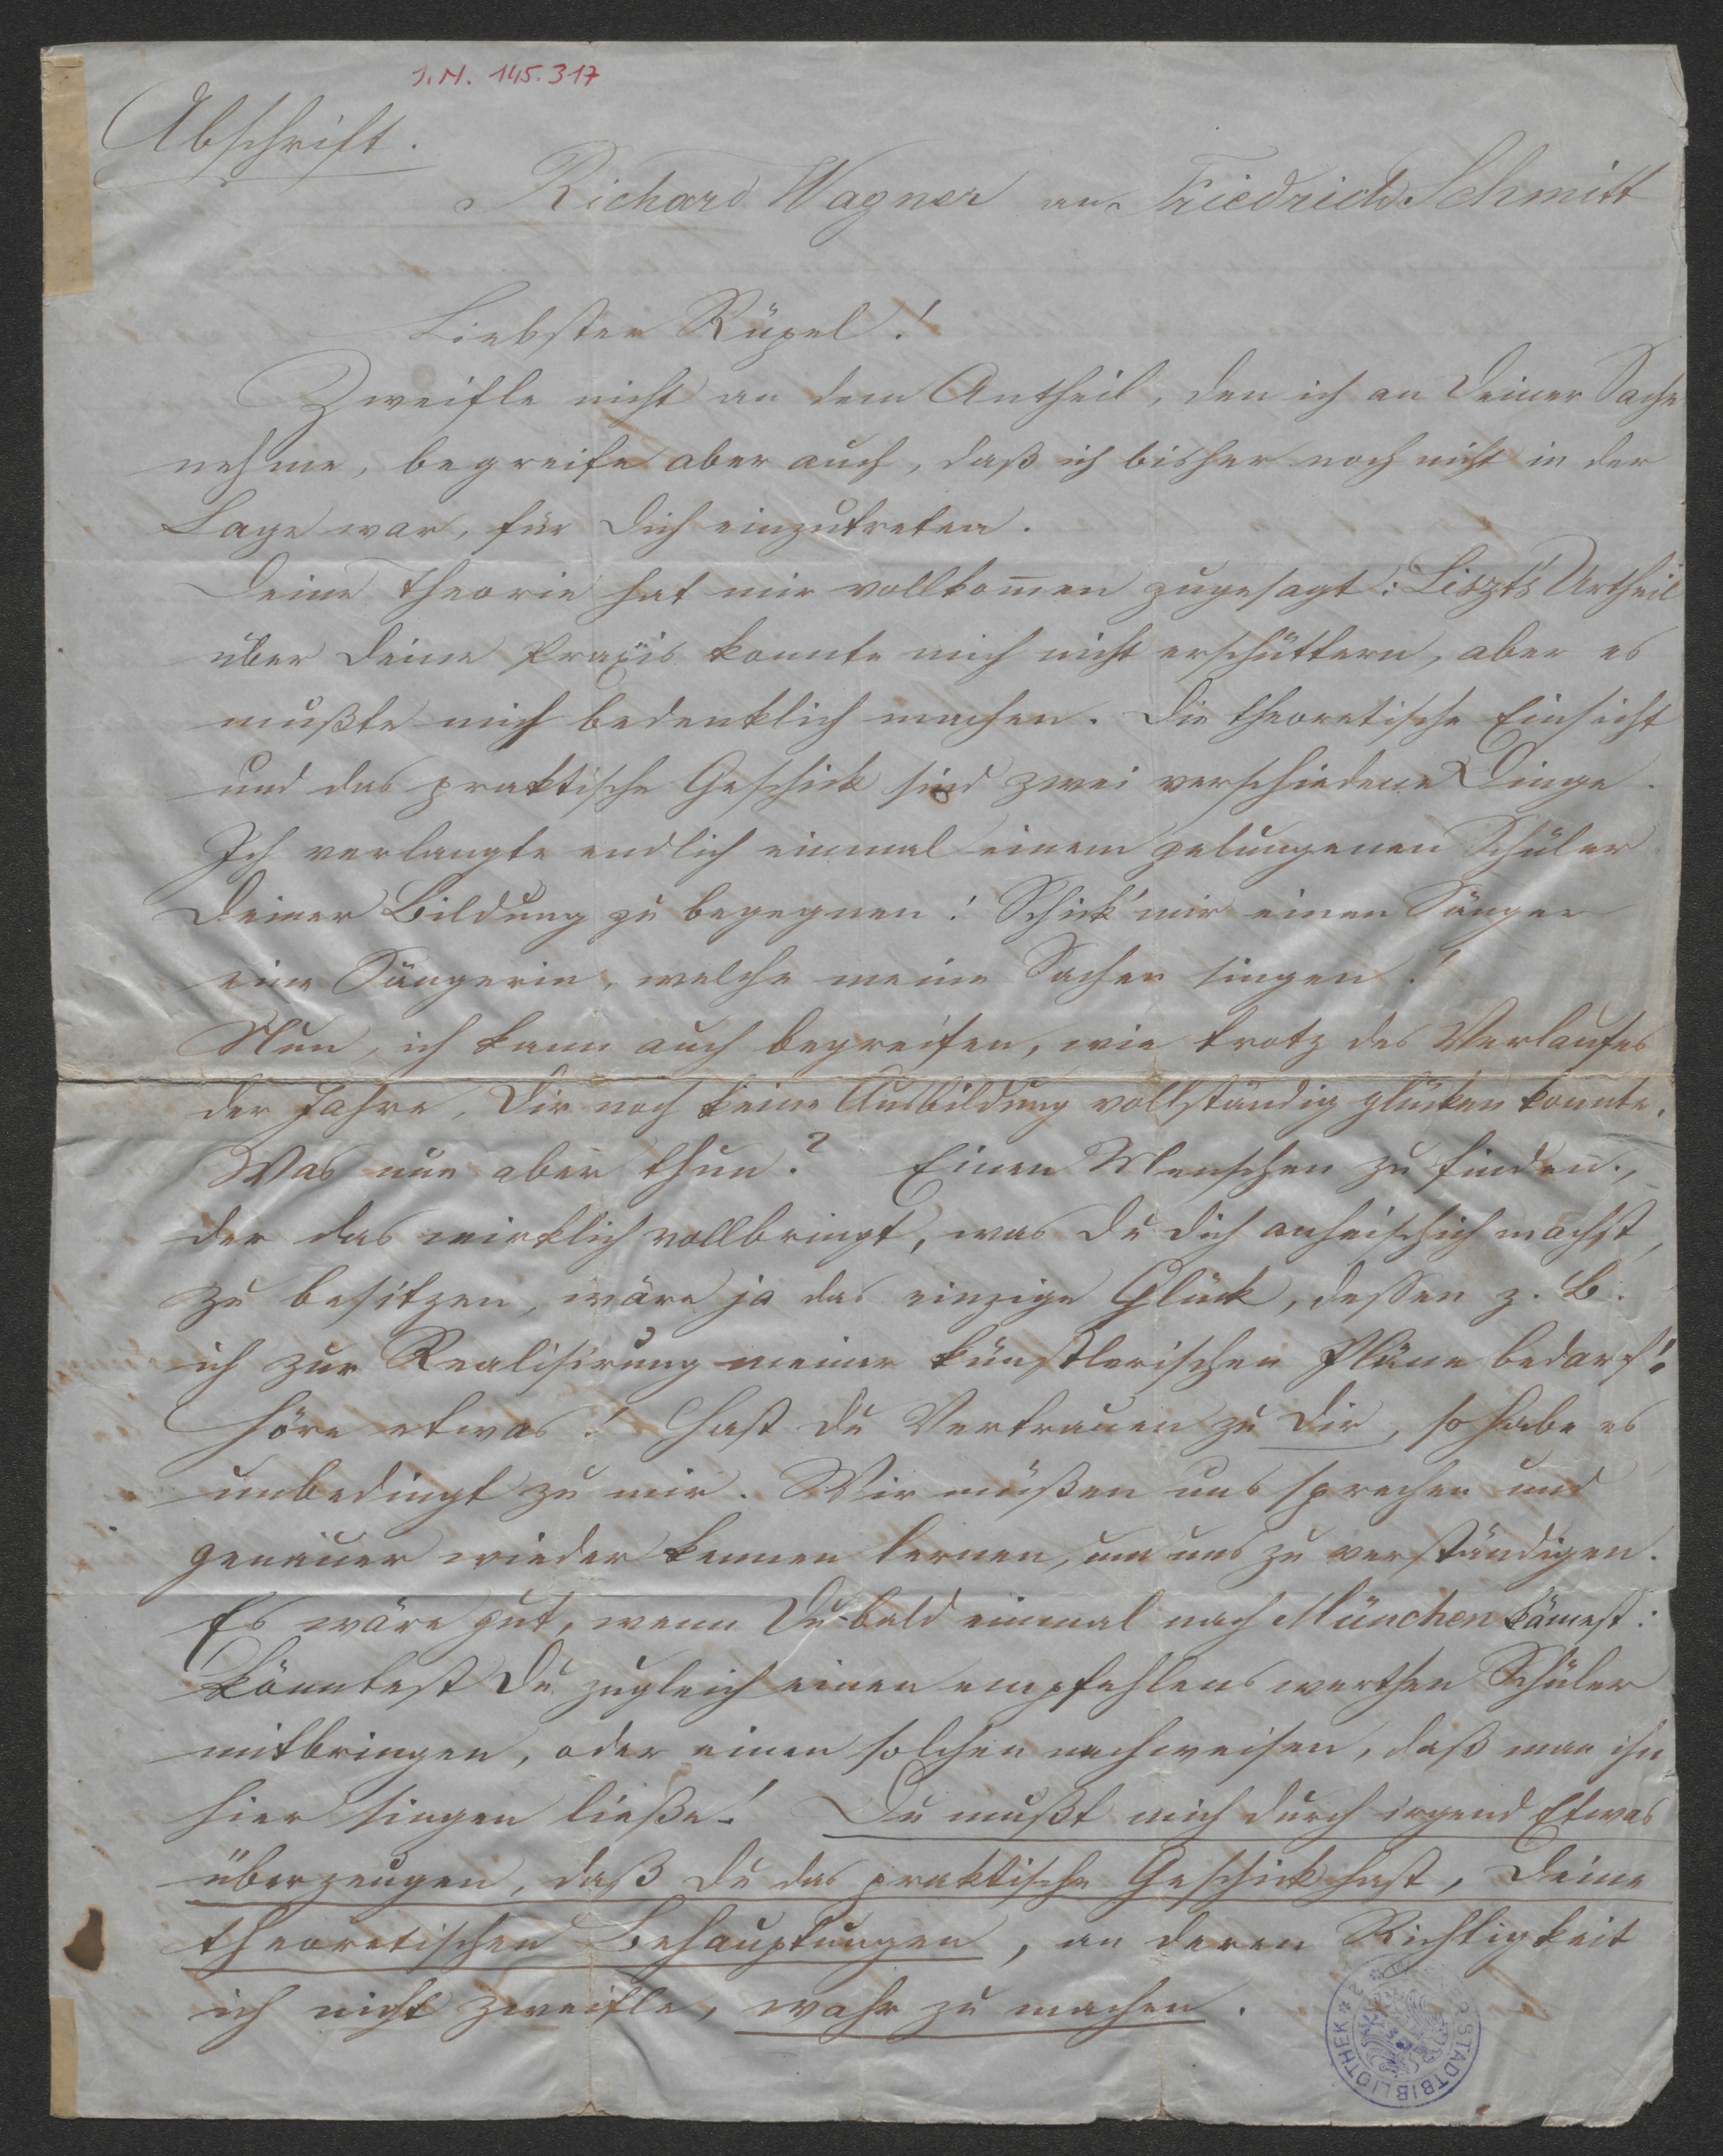 J.N. 145.317
Abschrift.
Richard Wagner an Friedrich Schmitt
Liebster Rüpel!
Zweifle nicht an dem Antheil, den ich an Deiner Sache
nehme, begreife aber auch, daß ich bisher noch nicht in der
Lage war, für Dich einzutreten.
Deine Theorie hat mir vollkom̄en zugesagt: Liszt's Urtheil
über Deine Praxis konnte mich nicht erschüttern, aber es
mußte mich bedenklich machen. Die theoretische Einsicht
und das praktische Geschick sind zwei verschiedene Dinge.
Ich verlangte endlich einmal einem gelungenen Schüler
Deiner Bildung zu begegnen: Schick' mir einen Sänger
eine Sängerin, welche meine Sachen singen!
Nun, ich kann auch begreifen, wie trotz des Verlaufes
der Jahre, Dir noch keine Ausbildung vollständig glücken konnte.
Was nun aber thun? Einen Menschen zu finden,
der das wirklich vollbringt, was Du Dich anheischich machst,
zu besitzen, wäre ja das einzige Glück, dessen z. B.
ich zur Realisirung meiner künstlerischen Pläne bedarf!
Höre etwas! Hast Du Vertrauen zu Dir, so habe es
unbedingt zu mir. Wir müßen uns sprechen und
genauer wieder kennen lernen, um uns zu verständigen.
Es wäre gut, wenn Du bald einmal nach München kämest:
könntest Du zugleich einen empfehlenswerthen Schüler
mitbringen, oder einen solchen nachweisen, daß man ihn
hier singen ließe! Du mußt mich durch irgend Etwas
überzeugen, daß Du das praktische Geschick hast, Deine
theoretischen Behauptungen, an deren Richtigkeit
ich nicht zweifle, wahr zu machen.
STADTBIBLIOTHEK